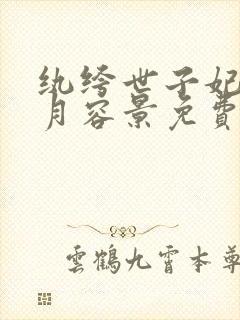 纨绔世子妃
月容景免費
雲鶴九霄本尊